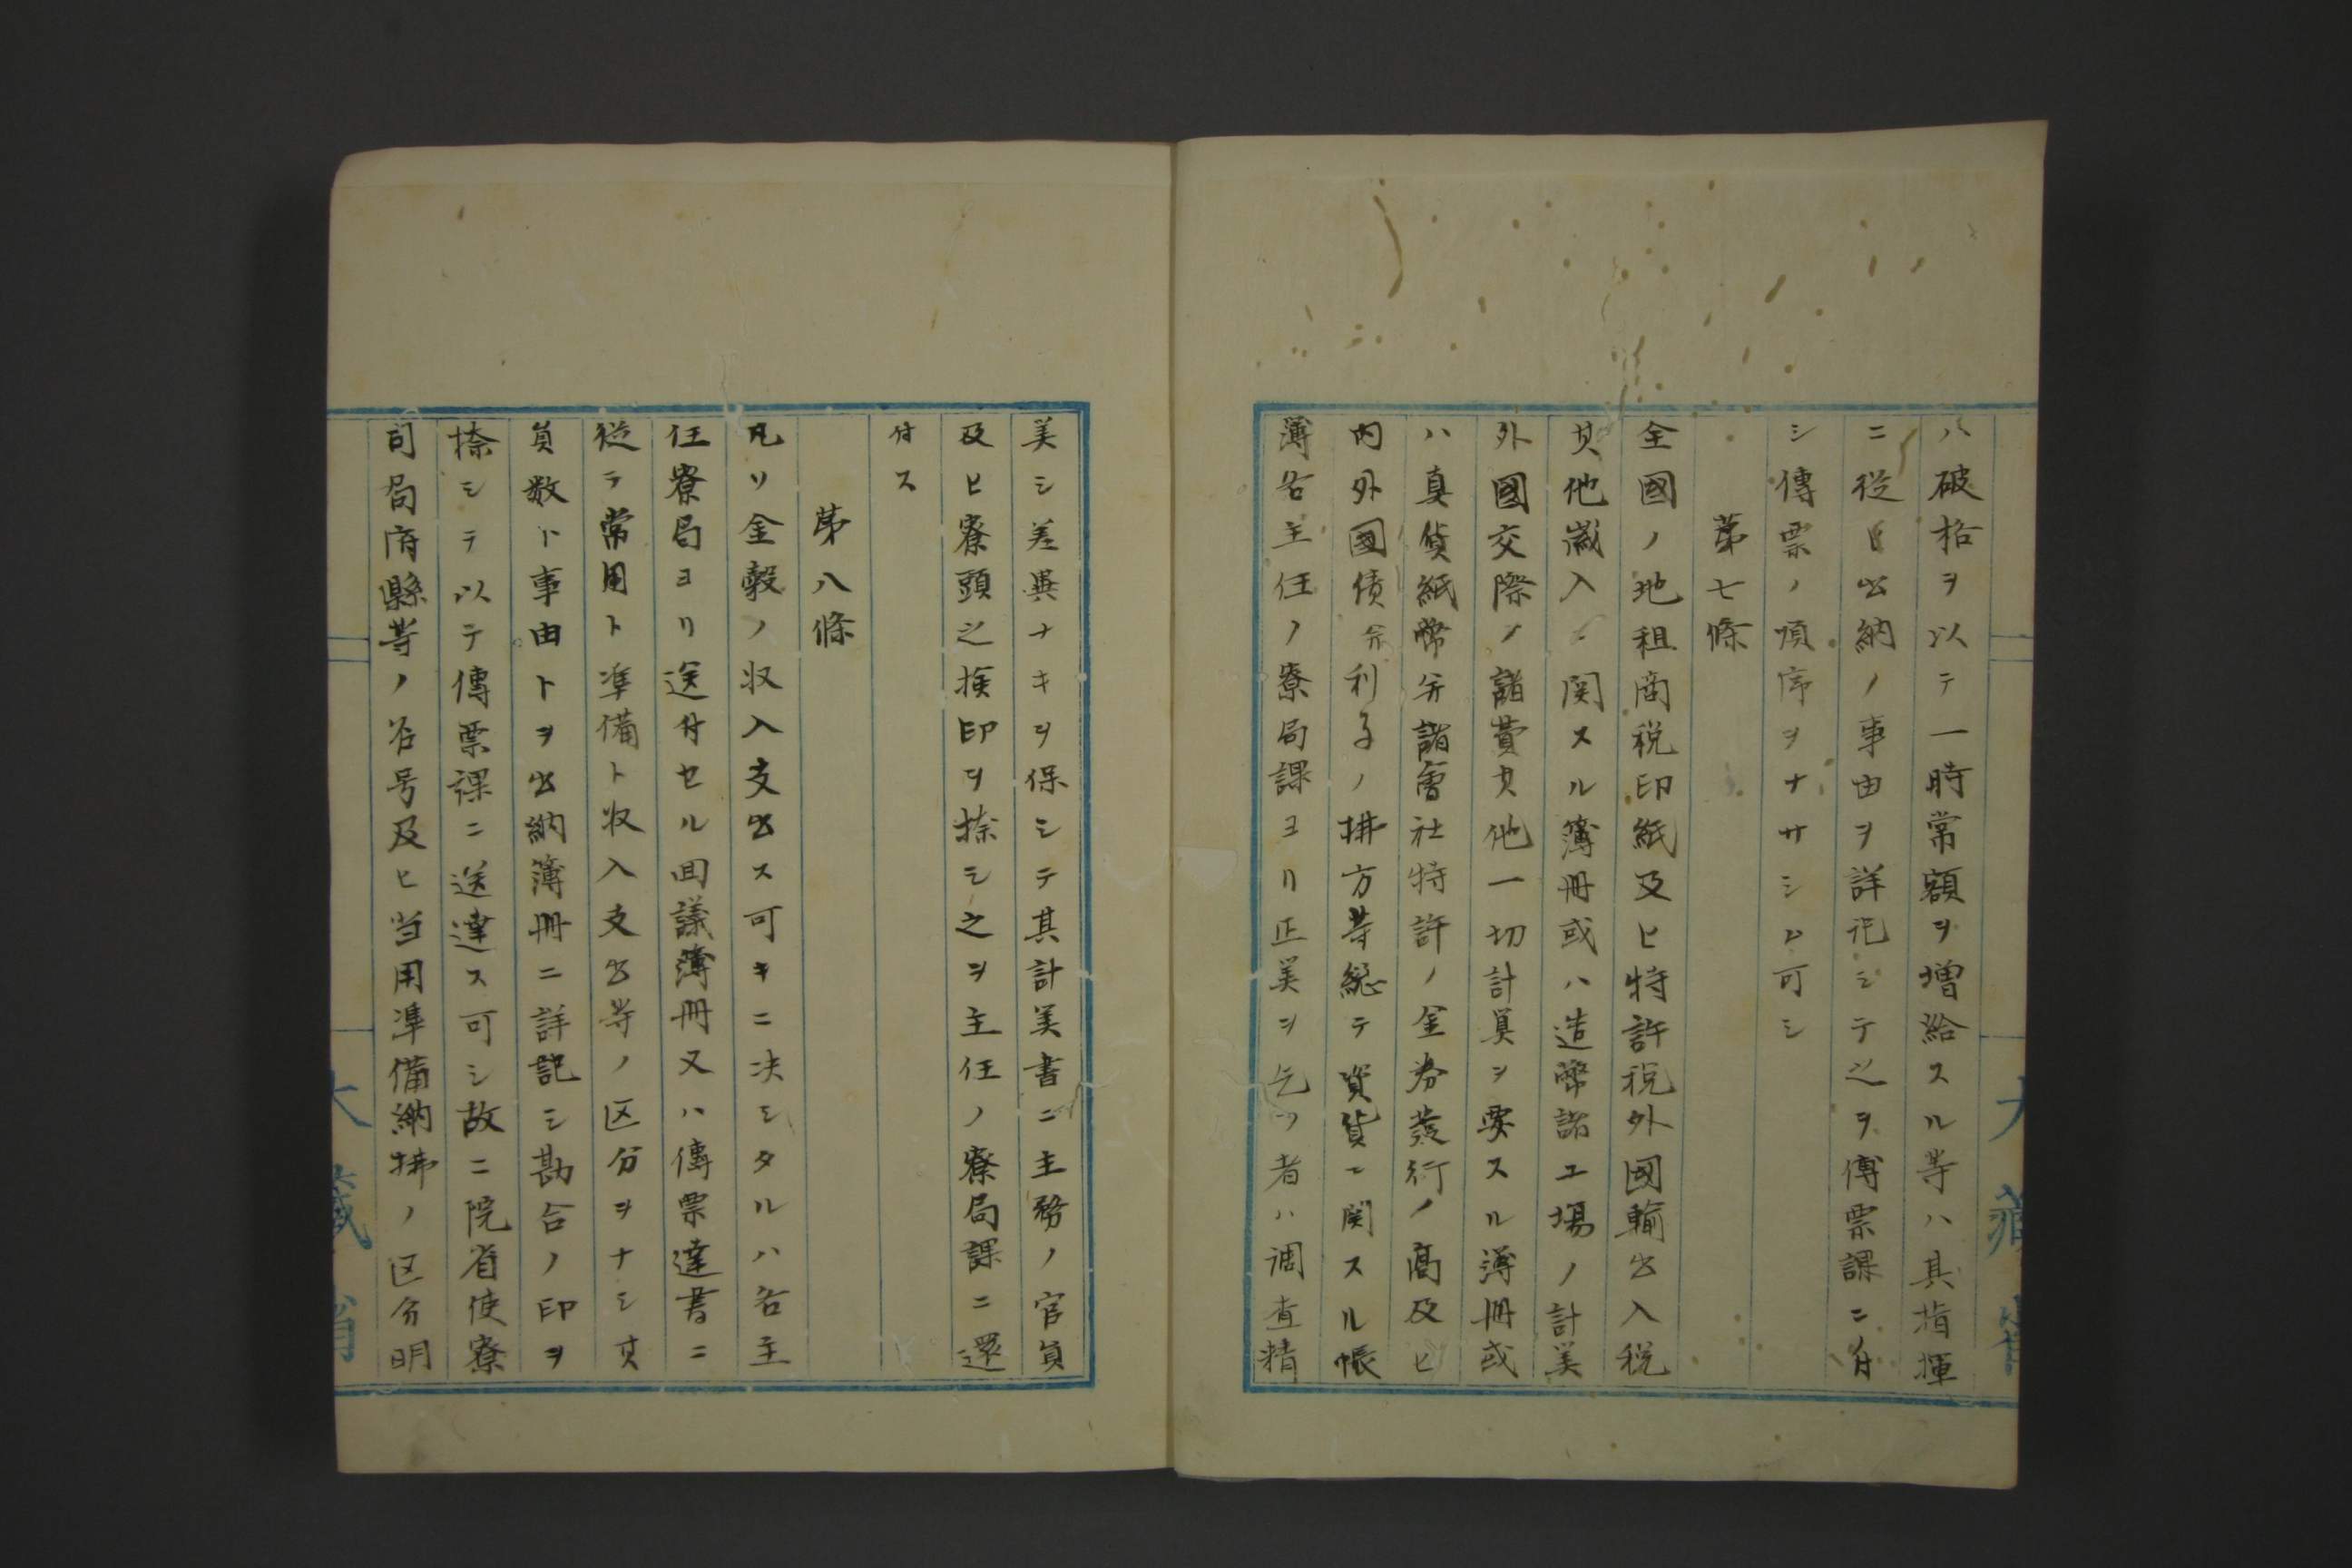 ハ破格ヲ以テ一時常額ヲ増給スル等ハ其指揮
ニ従ヒ出納ノ事由ヲ詳記シテ之ヲ傳票課ニ付
シ傳票ノ順序ヲナサシム可シ
第七條
全國ノ地租商税印紙及ヒ特許税外國輸出入税
其他歳入ニ関スル簿冊或ハ造幣諸工場ノ計筭
外國交際ノ諸費其他一切計算ヲ要スル簿冊或
ハ真貨紙幣并諸會社特許ノ金券發行ノ高及ヒ
内外國債并利子ノ拂方等総テ資貨ニ関スル帳
簿各主任ノ寮局課ヨリ正筭ヲ乞フ者ハ調査精
筭シ差異ナキヲ保シテ其計筭書ニ主務ノ官員
及ヒ寮頭之検印ヲ捺シ之ヲ主任ノ寮局課ニ還
付ス
第八條
凡リ金穀ノ収入支出ス可キニ决シタルハ各主
任寮局ヨリ送付セル回議簿冊又ハ傳票達書ニ
従テ常用ト準備ト収入支出等ノ区分ヲナシ其
員数ト事由トヲ出納簿冊ニ詳記シ勘合ノ印ヲ
捺シテ以テ傳票課ニ送達ス可シ故ニ院省使寮
司局府縣等ノ名号及ヒ当用準備納拂ノ区分明
大藏省